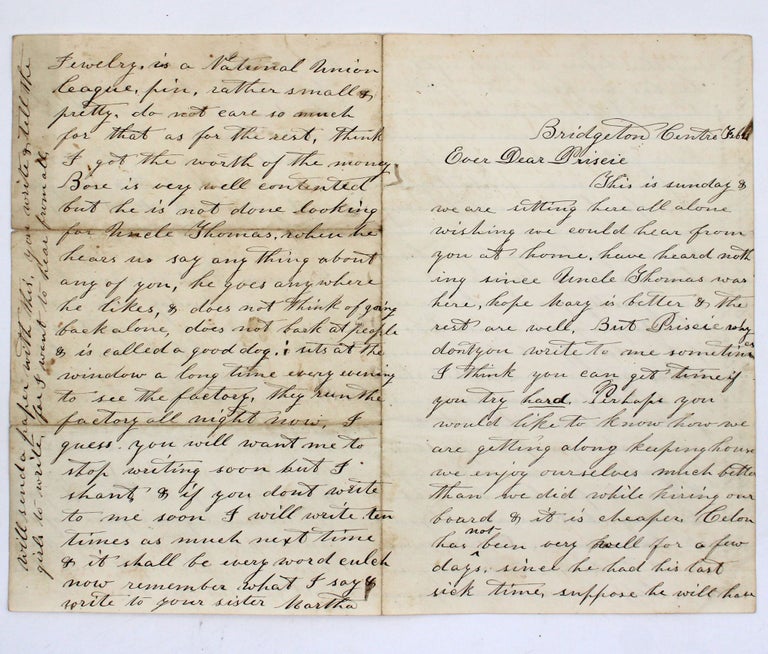 Bridgeton Centre Feb
Ever Dear Priscie
This is sunday &
we are sitting here all alone
wishing we could hear from
you at home. have heard noth
ing since Uncle Thomas was
here, hope Mary is better & the
rest are well. But Priscie why
dont you write to me sometimes
I think you can get time if
you try hard. Perhaps you
would like to know how we
are getting along keeping house
we enjoy ourselves much better
than we did while hiring our
board & it is cheaper.
has not been very well for a few
days. since he had his last
sick time, suppose he will have
Jewelry. is a National Union
league, pin, rather small &
pretty. do not care so much
for that as for the rest, think
I got the worth of the money
Bose is very well contented
but he is not done looking
for Uncle Thomas, when he
hears us say any thing about
any of you, he goes any where
he likes, & does not think of going
back alone, does not bark at people
& is called a good dog. sits at the
window a long time every evening
to see the factory, they run the
factory all night now, I
guess. you will want me to
stop writing soon but I
shant & if you dont write
to me soon I will write ten
times as much next time
& it shall be every word culch
now remember what I say &
write to your sister Martha
will send a paper with this, you write & tell the
girls to write, for I want to hear from all.